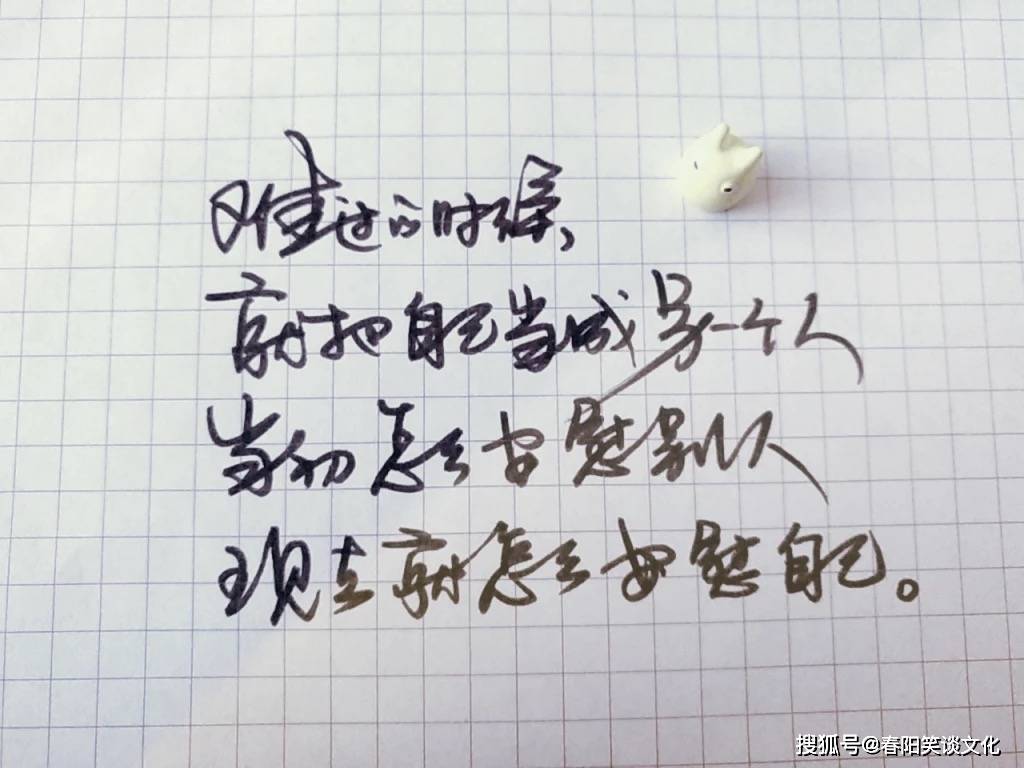 难过的时候，
就把自己当成另一个人
当初怎么安慰别人
现在就怎么安慰自己。
搜狐号@春阳笑谈文化